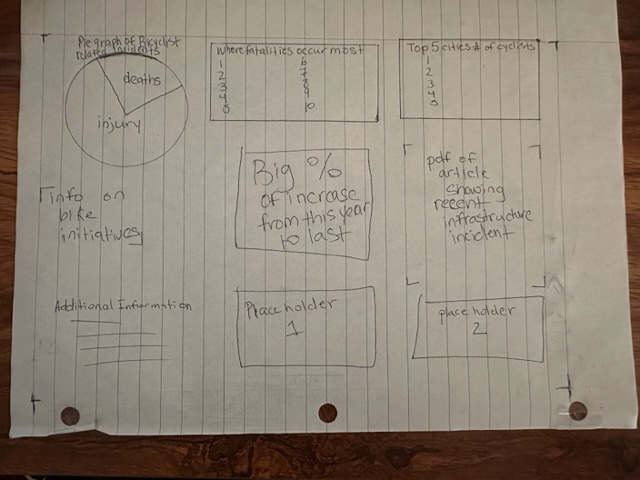 Pie graph of Bicyclist
related incidents
deaths
injury
Where fatalities occur most
1 6
2 7
3 8
4 9
5 10
Top 5 cities # of cyclists
1
2
3
4
5
info on
bike
initiatives
Big %
of increase
from this year
to last
pdf of
article
showing
recent
infrastructure
incident
Additional Information
Place holder
1
place holder
2